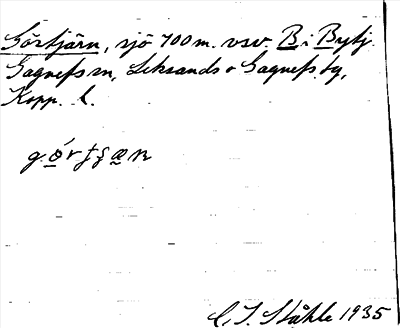 Görtjärn, sjö 700 m. vsv. B i Brytj.
Gagnefs sn, Leksands o Gagnefs tg,
Kopp. l.
C. I. Ståhle 1935